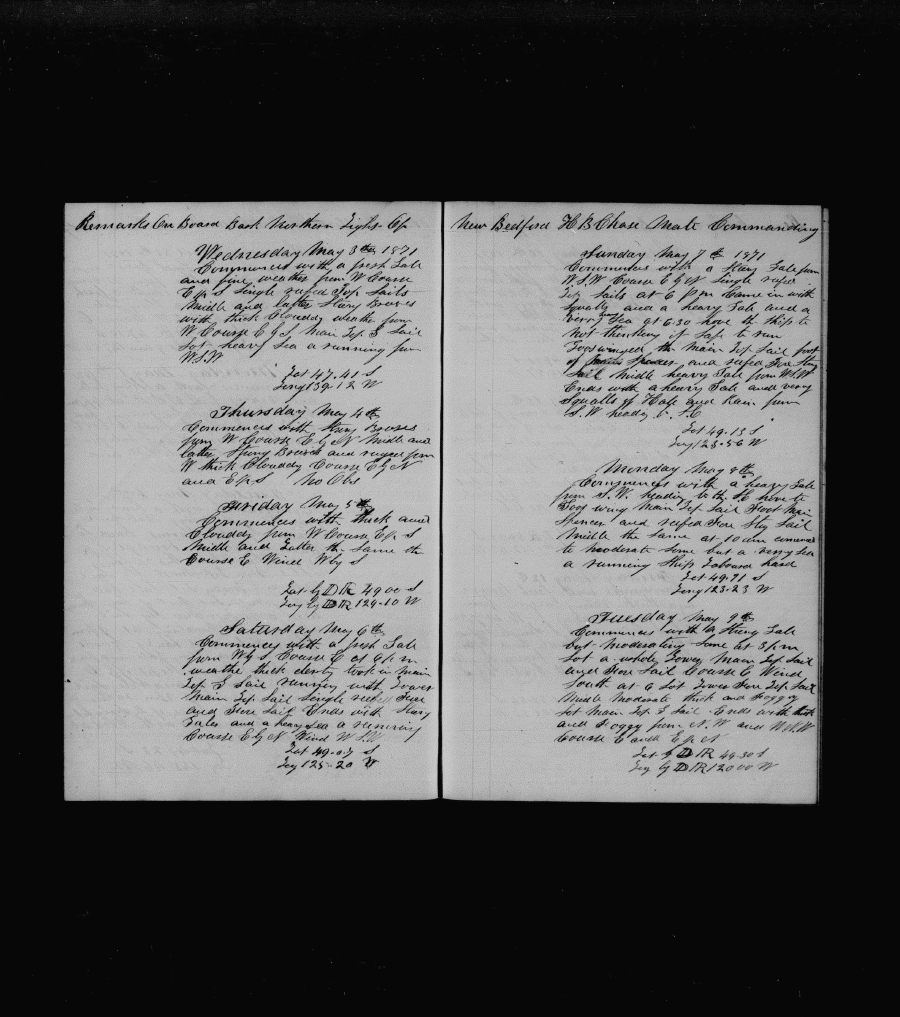 Remarks On Board Bark Northern Light Of
Wednesday May 3th 1871
Commences with a fresh Gale
and fine weather from W Course
E single reefed Top Sails
Middle and latter Strong Breeses
with thick Clouddy weathe from
W Course E by S Main Top Sail
Sot heavy Sea a running from
W.S.W
Lat 47.41 S
Long 139.12 W
Thursday May 4th
Commences with Strong Breeses
from W Course E by N Midle and
latter Strong Breeses and from
W thick Clouddy Course E by N
and S No Obs
Friday May 5th
Commences with thick and
Clouddy from W Course S
Middle and Latter the Same the
Course E Wind W by S
Lat by DR 49 00 S
Long by DR 129.10 W
Saturday May 6th
Commences with a fresh Gale
from W by S Course E at 6 p m
weathe thick took in Main
Top Sail running with Lower
Main Top Sail Single reef Fore
and Fore Sail Ends with Strong
Gales and a heavy Sea a running
Course E by N Wind W S W
Lat 49.07 S
Long 125.20 W
New Bedford H B Chase Mate Commanding
Sunday May 7th 1871
Commences with a Strong Gale from
W.S.W Course E by N Single reefed
Top Sails at 6 p m Came in with
Squalls and a heavy Gale and a
very Sea at 6.30 hove the Ship to
Not thinking it Safe to run
Gooswinged the Main Top Sail foot
of Spencer and reefed Fore Stay
Sail Midle heavy Gale from W.S.W
Ends with a heavy Gale and very
Squalls of Hale and Rain from
S.W heading
Lat 49.13 S
Long 123.56 W
Monday May 8th
Commences with a heavy Gale
from S.W. heading to the hove to
Goos wing Main Top Sail Foot Main
Spencer and reefed Fore Stay Sail
Middle the Same at 10 am comenced
to moderate Some but a very Sea
a running Ship Laboured hard
Lat 49.71 S
Long 123.23 W
Tuesday May 9th
Commences with a Strong Gale
but moderating Some at 3 p m
Sot a whole Lower Main Top Sail
and Fore Sail Course E Wind
South at 6 Sot Lower Fore Top Sail
Middle Moderate thick and Foggy
Sot Main Top Sail Ends with thick
and Foggy from N.W and W.N.W
Course E and N
Lat by DR 49.30 S
Long by DR 120.00 W